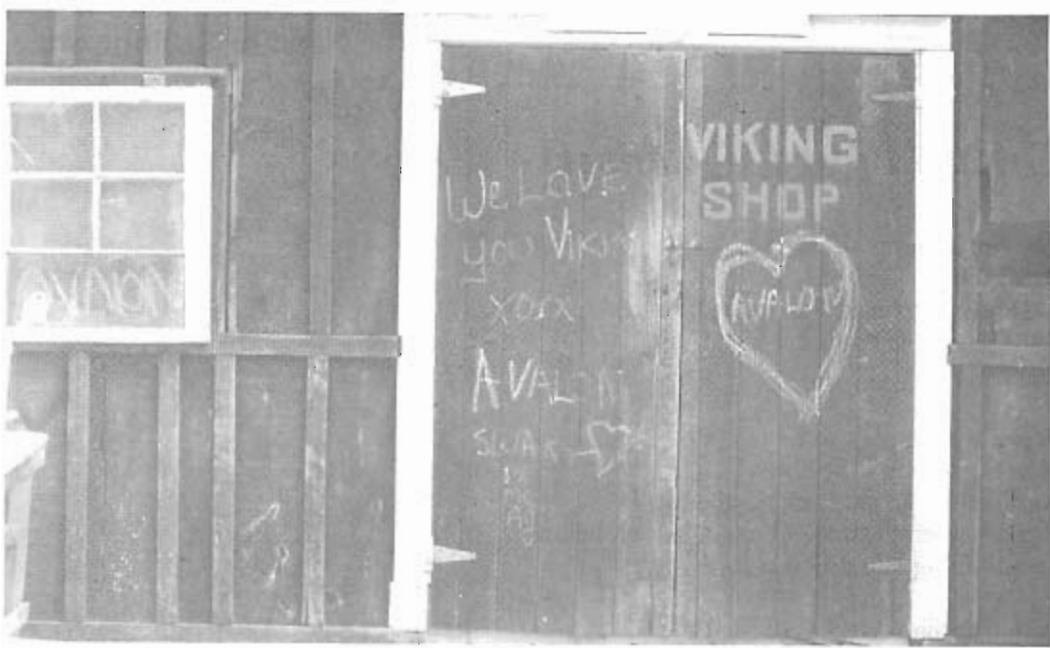 AVALON
We LOVE
you VIKING
XOXX
AVALON
SWAK
VIKING
SHOP
AVALON